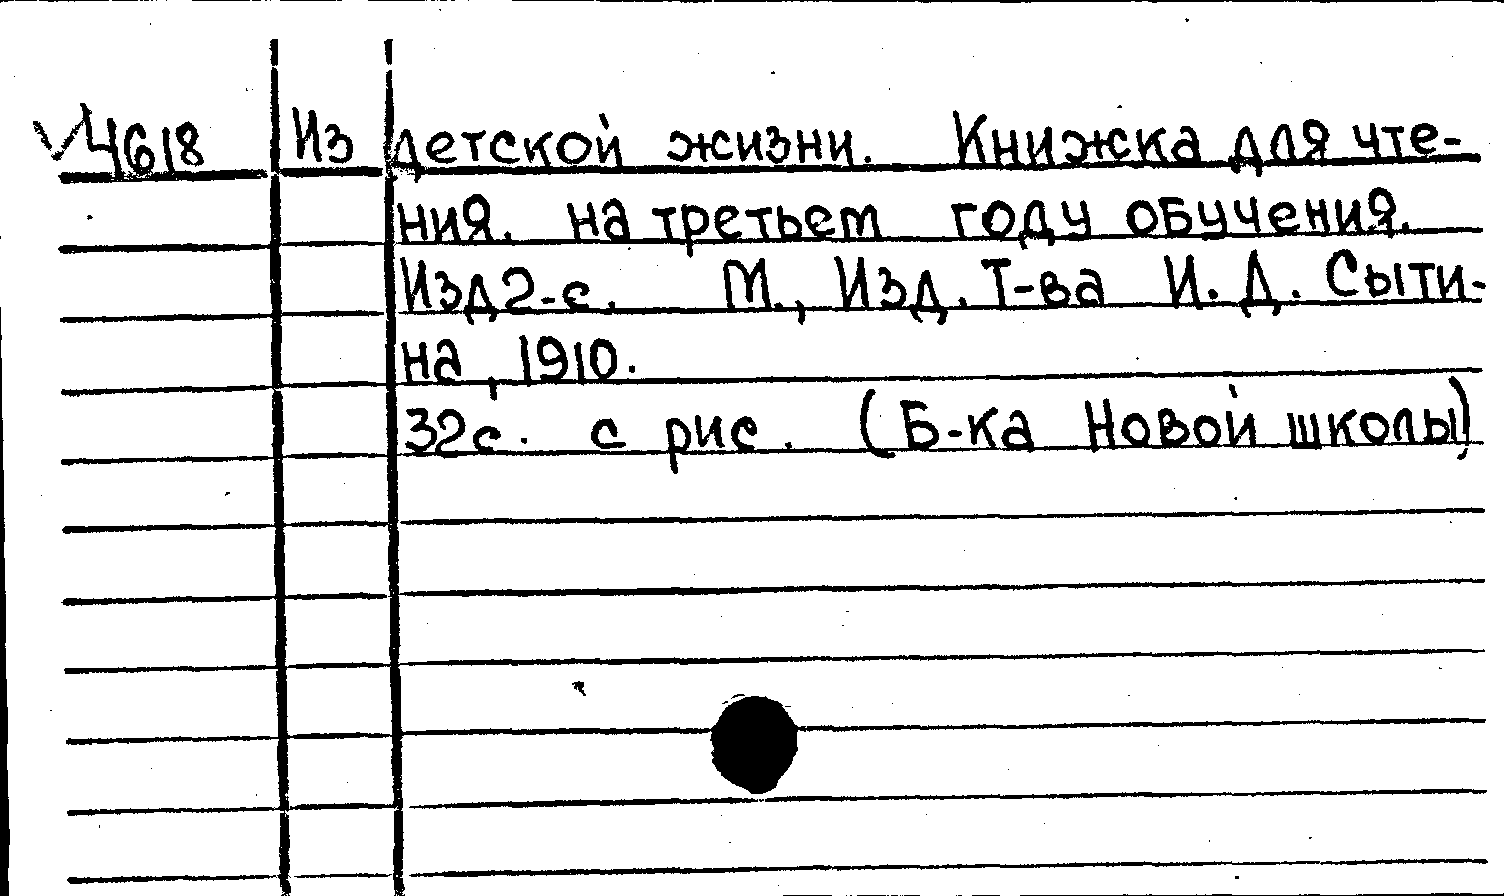 √4618 Из детской жизни. Книжка для чте-
ния. на третьем году обучения.
Изд 2-е. М., Изд. Т-ва И. Д. Сыти-
на, 1910.
32с. с рис. (Б-ка Новой школы)